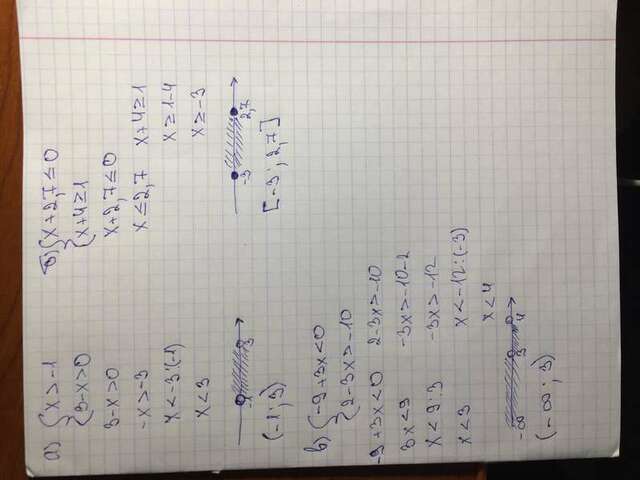 а) { x > -1
3-x>0
3-x>0
-x>-3
x < -3:(-1)
x < 3
-1 3
(-1; 3)
б) { x+2,7 ≤ 0
x+4≥1
x+2,7≤0
x ≤ 2,7
x+4≥1
x ≥ 1-4
x ≥ -3
-3 2,7
[-3; 2,7]
в) { -9+3x<0
2-3x>-10
-9+3x<0
3x<9
x < 9:3
x < 3
2-3x>-10
-3x>-10-2
-3x>-12
x < -12:(-3)
x < 4
-∞ 3 4
(-∞; 3)